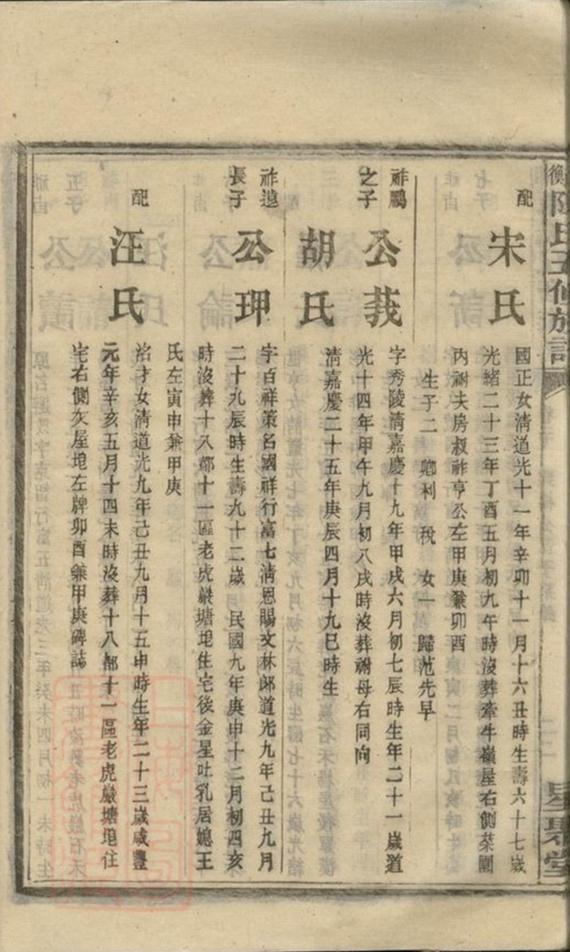 陳氏五修族譜
星聚堂
配
宋氏
國正女清道光十一年辛卯十一月十六丑時生壽六十七歲
光緒二十三年丁酉五月初九午時沒葬牽牛嶺屋右側菜園
內祔夫房叔祚亨公左甲庚兼卯酉
生子二 鄉利 稅 女一歸范先早
祚鵬
之子
公莪
字秀陵清嘉慶十九年甲戌六月初七辰時生年二十一歲道
光十四年甲午九月初八戌時沒葬祔母右同向
胡氏
清嘉慶二十五年庚辰四月十九巳時生
祚遠
長子
公珅
字百祥策名國祥行富七清恩賜文林郎道光九年己丑九月
二十九辰時生壽九十二歲 民國九年庚申十二月初四亥
時沒葬十八都十一區老虎巖塘垉住宅後金星吐乳居媳王
氏左寅申兼甲庚
配
汪氏
治才女清道光九年己丑九月十五申時生年二十三歲咸豐
元年辛亥五月十四未時沒葬十八都十一區老虎巖塘垉住
宅右側灰屋垉左牌卯酉兼甲庚碑誌